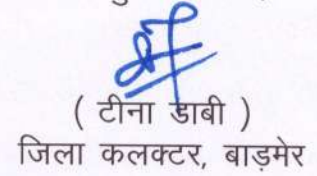 ( टीना डाबी )
जिला कलक्टर, बाड़मेर